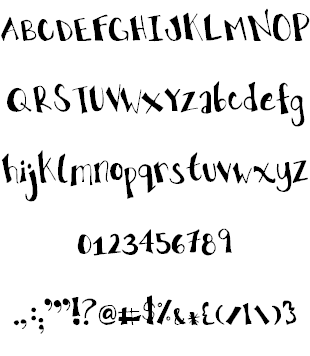 ABCDEFGHIJKLMNOP
QRSTUVWXYZabcdefg
hijklmnopqrstuvwxyz
0123456789
.,:;'"”!?@#$%&*{(/|\)}